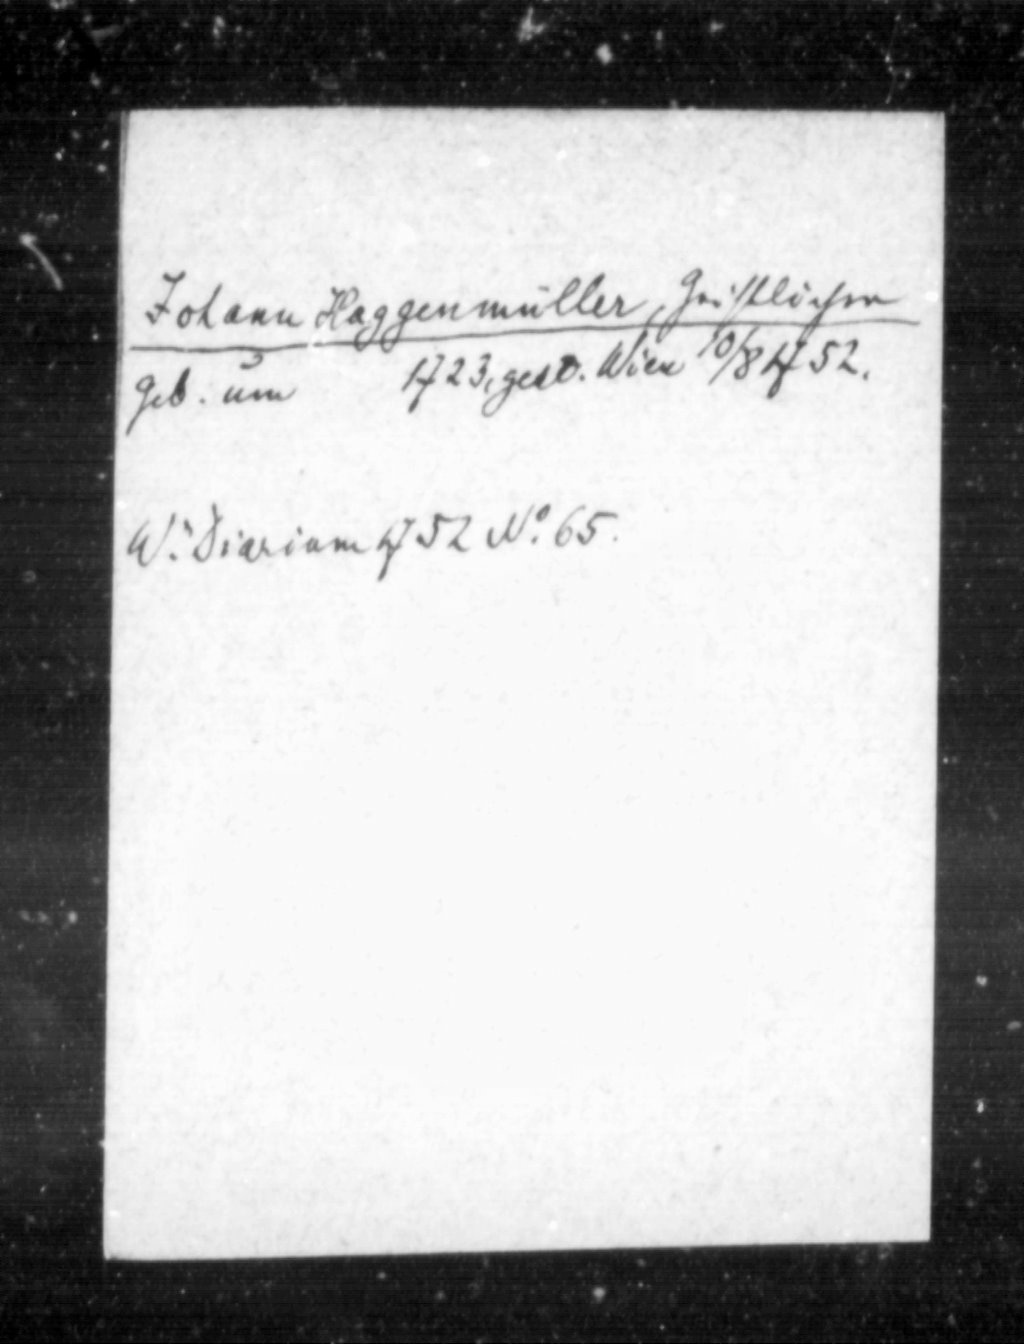 Johann Haggenmüller, Geistlicher
geb. um 1723, gest. Wien 10/8 1752.
W. Diarium 1752 No. 65.